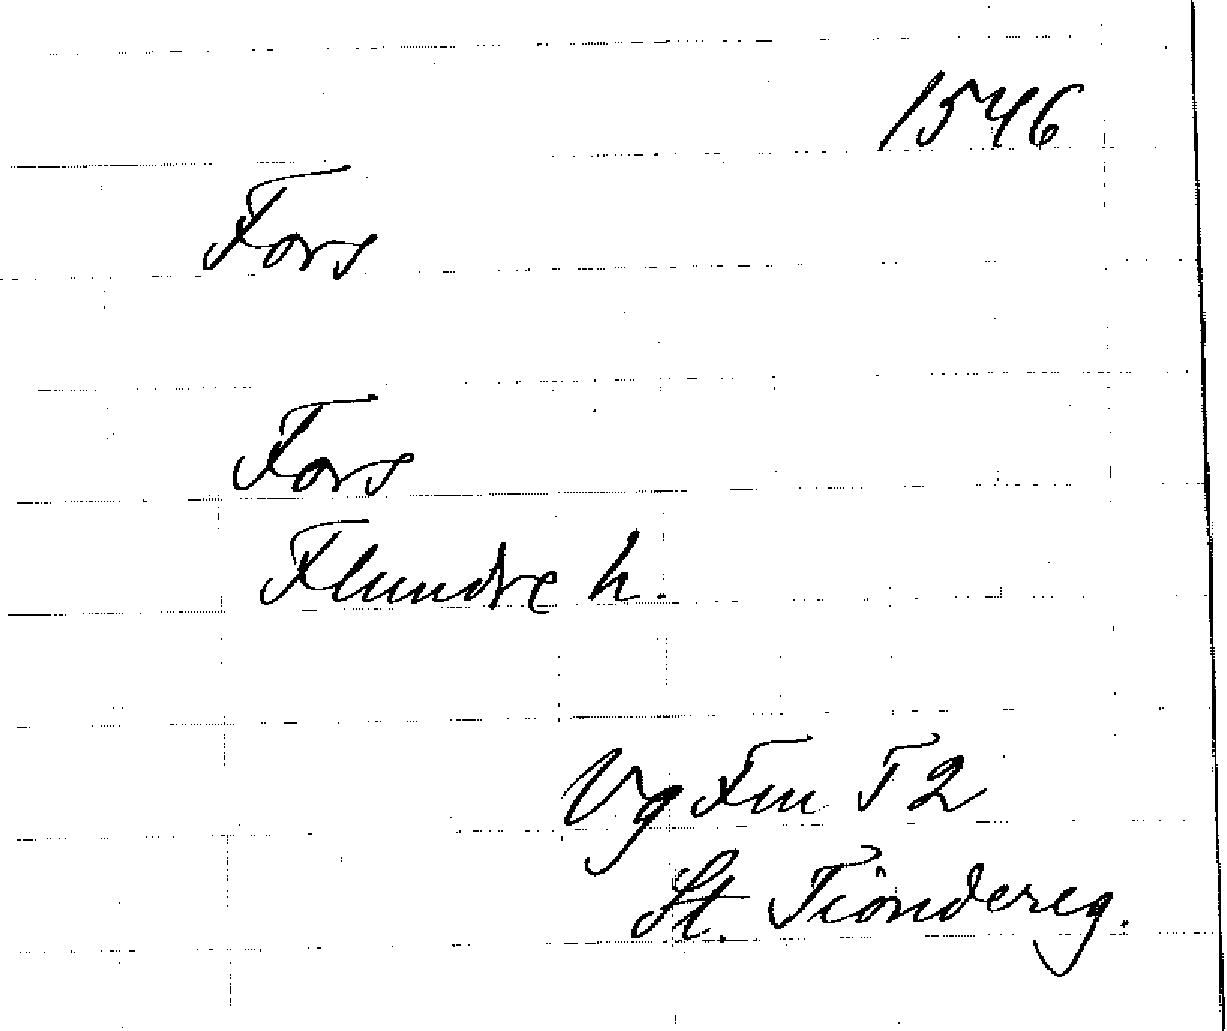 1546
Fors
Fors
Flundre h.
Vg Fnu T 2
St. Tiondereg.